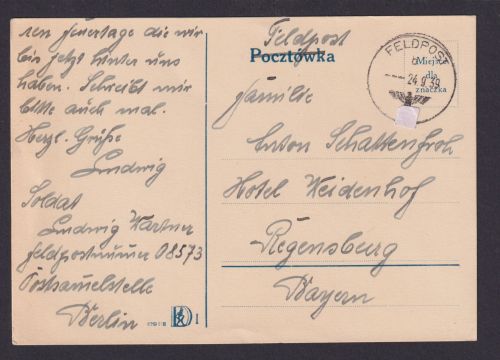 ren Feuertage die wir
bis jetzt hinter uns
haben. Schreibt mir
bitte auch mal.
Herzl. Grüße
Ludwig
Soldat
Ludwig Wartner
Feldpostnummer 08573
Postsamelstelle
Berlin
I
Feldpost
Pocztówka
FELDPOST
24.9.39
Miejsce
dla
znaczka
Familie
Anton Schattenfroh
Hotel Weidenhof
Regensburg
Bayern